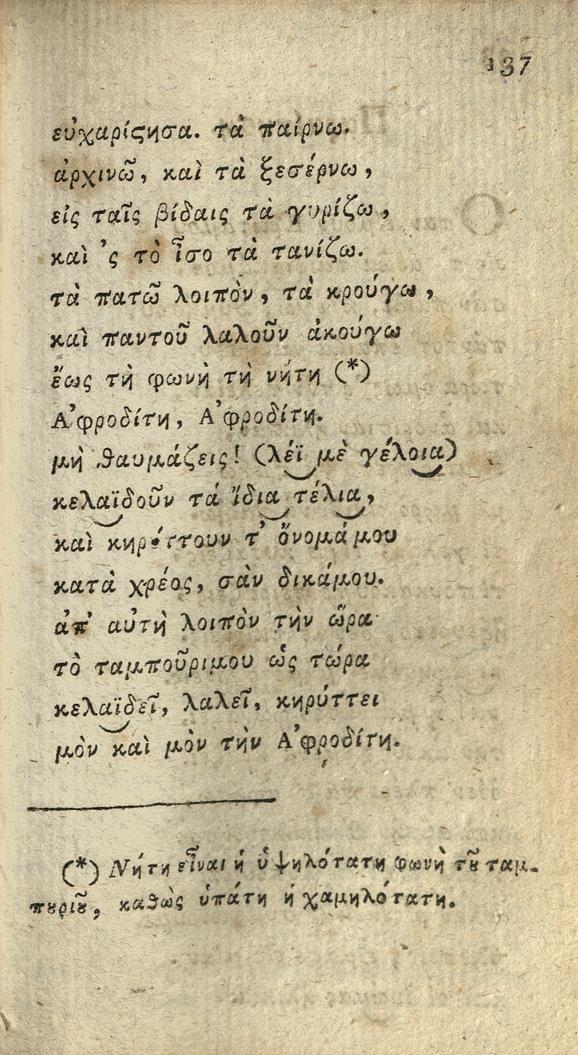 137
εὐχαρίϛησα. τὰ παίρνω.
ἀρχινῶ, καὶ τὰ ξεσέρνω,
εἰς ταῖς βίδαις τὰ γυρίζω,
καὶ 'ς τὸ ἶσο τὰ τανίζω.
τὰ πατῶ λοιπὸν, τὰ κρούγω,
καὶ παντοῦ λαλοῦν ἀκούγω
ἕως τὴ φωνὴ τὴ νήτη (*)
Ἀφροδίτη, Ἀφροδίτη.
μὴ θαυμάζεις! (λέϊ μὲ γέλοια)
κελαϊδοῦν τά ἴδια τέλια,
καὶ κηρύττουν τ' ὄνομάμου
κατὰ χρέος, σὰν δικάμου.
ἀπ' αὐτὴ λοιπὸν τὴν ὥρα
τὸ ταμποῦριμου ὡς τώρα
κελαϊδεῖ, λαλεῖ, κηρύττει
μὸν καὶ μὸν τὴν Ἀφροδίτη.
(*) Νήτη εἶναι ἡ ὑψηλότατη φωνὴ τȣ͂ ταμ-
πȣριȣ͂, καθὼς ὑπάτη ἡ χαμηλότατη.